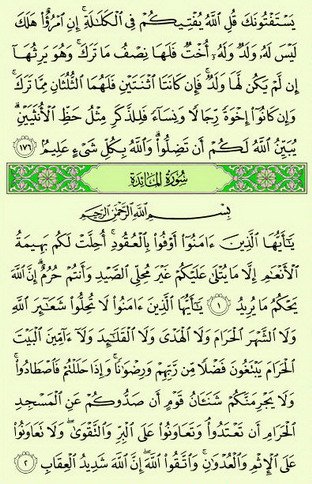 يَسْتَفْتُونَكَ قُلِ اللَّهُ يُفْتِيكُمْ فِي الْكَلَالَةِ إِنِ امْرُؤٌا هَلَكَ
لَيْسَ لَهُ وَلَدٌ وَلَهُ أُخْتٌ فَلَهَا نِصْفُ مَا تَرَكَ وَهُوَ يَرِثُهَا
إِن لَّمْ يَكُن لَّهَا وَلَدٌ فَإِن كَانَتَا اثْنَتَيْنِ فَلَهُمَا الثُّلُثَانِ مِمَّا تَرَكَ
وَإِن كَانُوا إِخْوَةً رِّجَالًا وَنِسَاءً فَلِلذَّكَرِ مِثْلُ حَظِّ الْأُنثَيَيْنِ
يُبَيِّنُ اللَّهُ لَكُمْ أَن تَضِلُّوا وَاللَّهُ بِكُلِّ شَيْءٍ عَلِيمٌ ١٧٦
سُورَةُ المَائِدَة
بِسْمِ اللَّهِ الرَّحْمَٰنِ الرَّحِيمِ
يَٰأَيُّهَا الَّذِينَ ءَامَنُوا أَوْفُوا بِالْعُقُودِ أُحِلَّتْ لَكُم بَهِيمَةُ
الْأَنْعَٰمِ إِلَّا مَا يُتْلَىٰ عَلَيْكُمْ غَيْرَ مُحِلِّي الصَّيْدِ وَأَنتُمْ حُرُمٌ إِنَّ اللَّهَ
يَحْكُمُ مَا يُرِيدُ ١ يَٰأَيُّهَا الَّذِينَ ءَامَنُوا لَا تُحِلُّوا شَعَٰئِرَ اللَّهِ
وَلَا الشَّهْرَ الْحَرَامَ وَلَا الْهَدْيَ وَلَا الْقَلَٰئِدَ وَلَا ءَامِّينَ الْبَيْتَ
الْحَرَامَ يَبْتَغُونَ فَضْلًا مِّن رَّبِّهِمْ وَرِضْوَٰنًا وَإِذَا حَلَلْتُمْ فَاصْطَادُوا
وَلَا يَجْرِمَنَّكُمْ شَنَـَٔانُ قَوْمٍ أَن صَدُّوكُمْ عَنِ الْمَسْجِدِ
الْحَرَامِ أَن تَعْتَدُوا وَتَعَاوَنُوا عَلَى الْبِرِّ وَالتَّقْوَىٰ وَلَا تَعَاوَنُوا
عَلَى الْإِثْمِ وَالْعُدْوَٰنِ وَاتَّقُوا اللَّهَ إِنَّ اللَّهَ شَدِيدُ الْعِقَابِ ٢